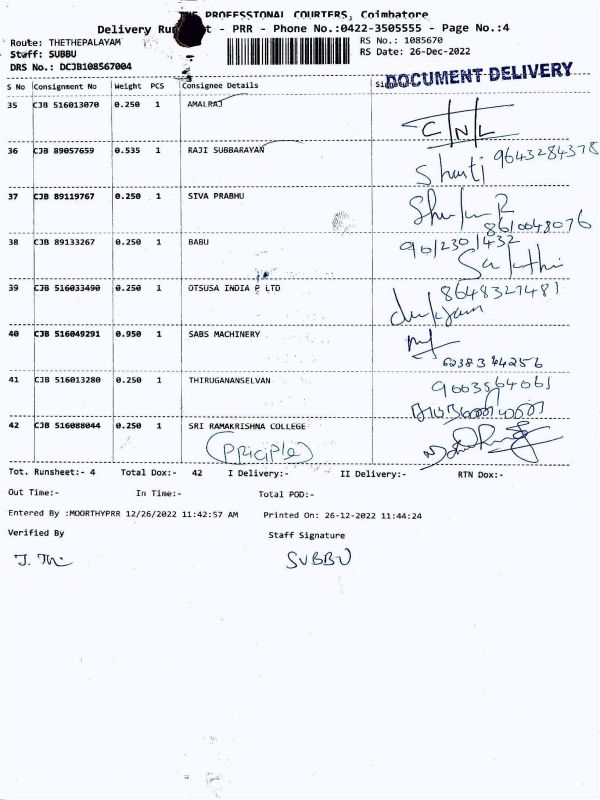 PROFESSIONAL COURIERS, Coimbatore
Delivery Run - PRR - Phone No.:0422-3505555 - Page No.:4
Route: THETHEPALAYAM
Staff: SUBBU
DRS No.: DCJB108567004
RS No.: 1085670
RS Date: 26-Dec-2022
DOCUMENT DELIVERY
S No Consignment No Weight PCS Consignee Details
35 CJB 516013070 0.250 1 AMALRAJ
C/N/L
36 CJB 89057659 0.535 1 RAJI SUBBARAYAN
9643284378
Shanti
37 CJB 89119767 0.250 1 SIVA PRABHU
8610048076
38 CJB 89133267 0.250 1 BABU
9012301432
39 CJB 516033490 0.250 1 OTSUSA INDIA P LTD
8648327481
40 CJB 516049291 0.950 1 SABS MACHINERY
41 CJB 516013280 0.250 1 THIRUGANANSELVAN
9003564061
42 CJB 516088044 0.250 1 SRI RAMAKRISHNA COLLEGE
(PRICIPLE)
Tot. Runsheet:- 4 Total Dox:- 42 I Delivery:- II Delivery:- RTN Dox:-
Out Time:- In Time:- Total POD:-
Entered By :MOORTHYPRR 12/26/2022 11:42:57 AM Printed On: 26-12-2022 11:44:24
Verified By Staff Signature
SUBBU